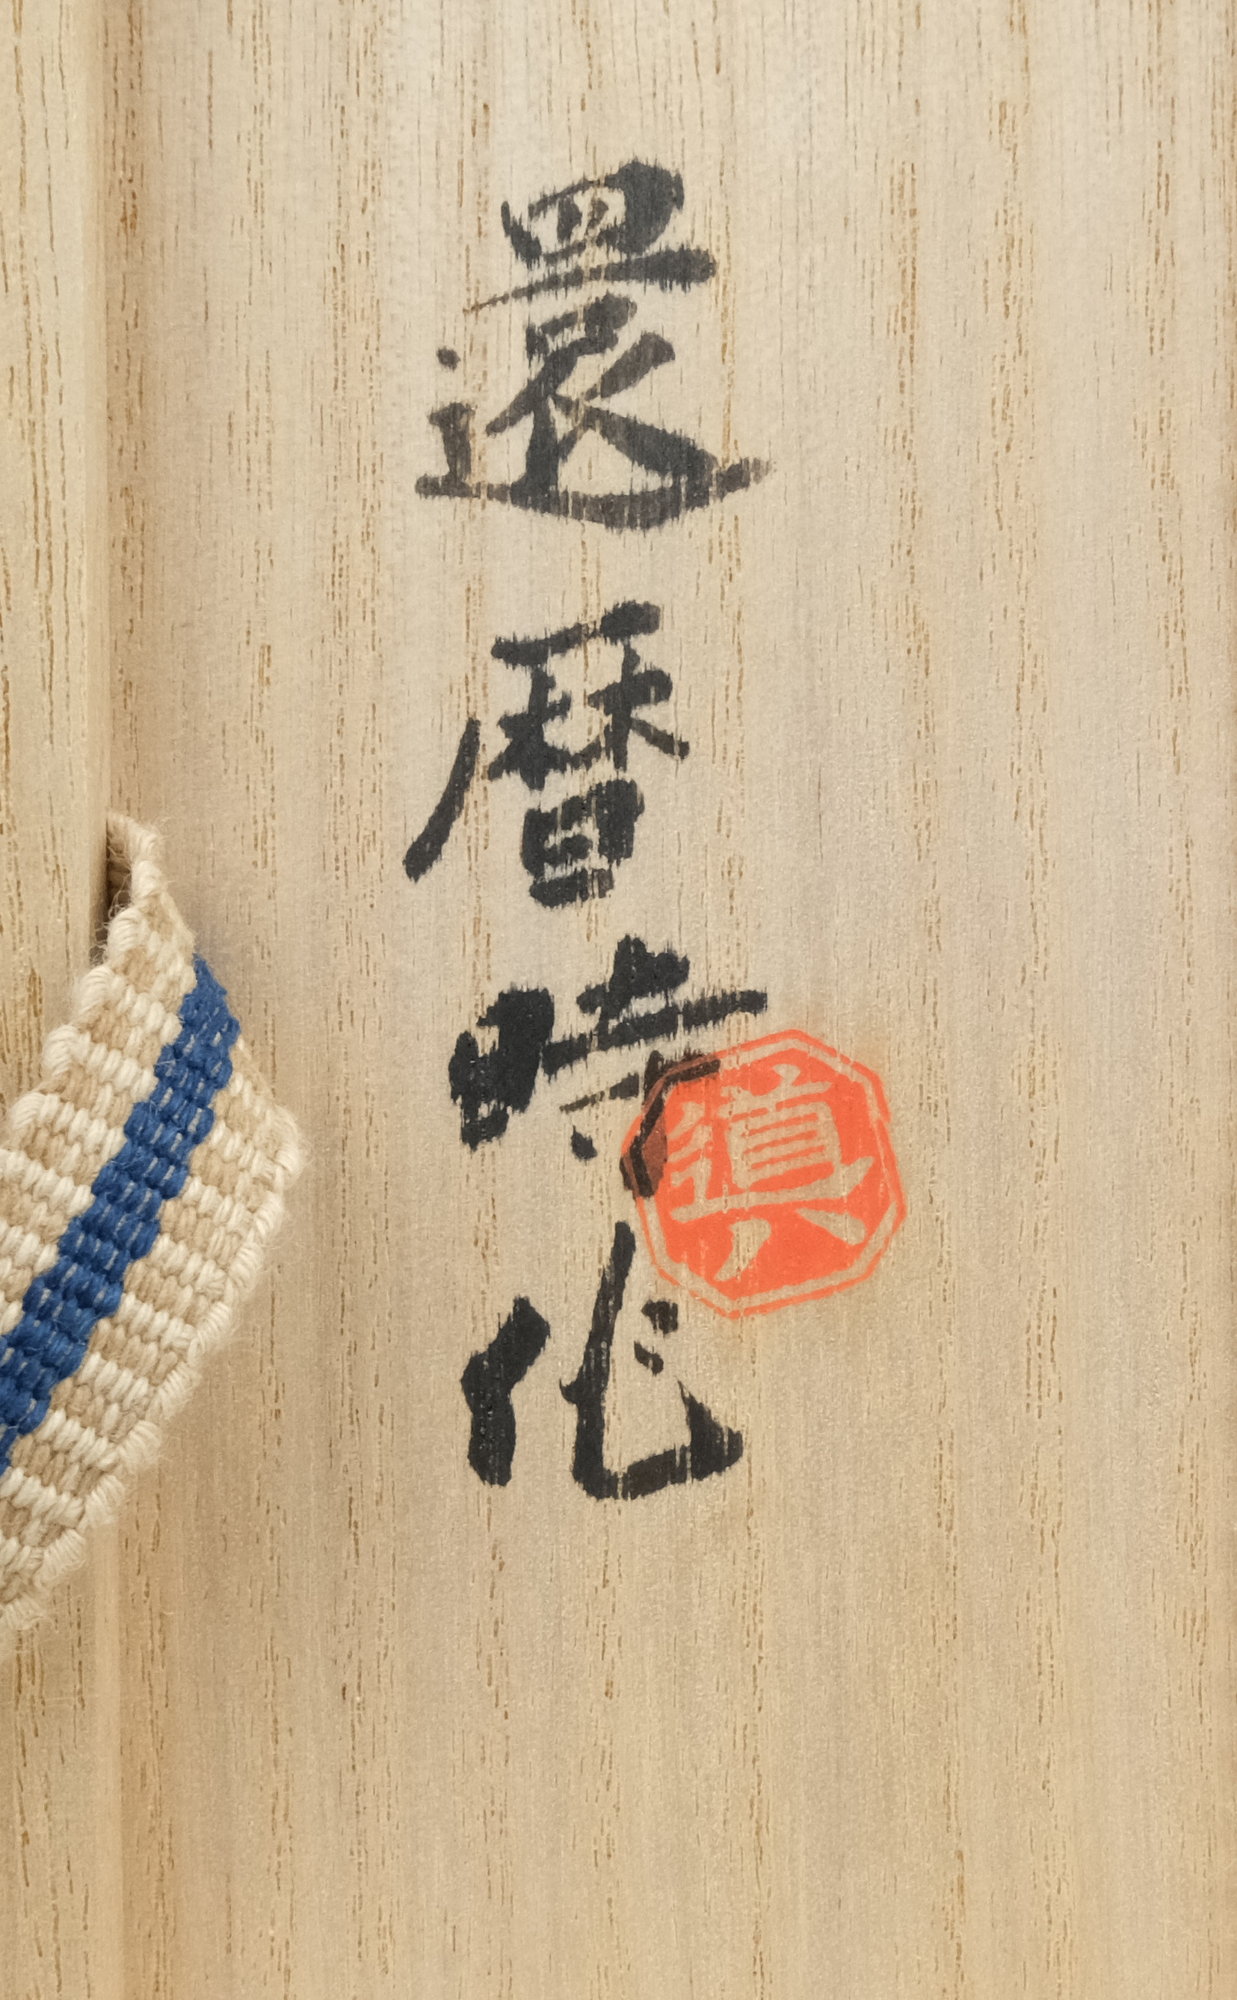 還暦時作
眞